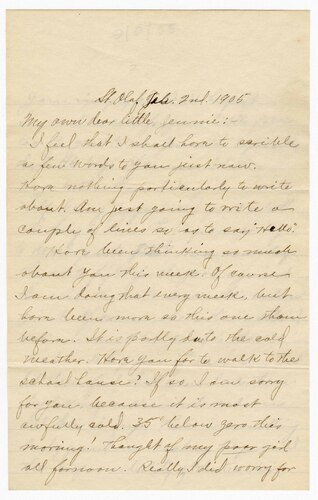 St. Olaf, Feb. 2nd, 1905
My own dear little Jennie:-
I feel that I shall have to scribble
a few words to you just now.
Have nothing particularly to write
about. Am just going to write a
couple of lines so as to say "Hello."
Have been thinking so much
about you this week. Of course
I am doing that every week, but
have been more so this one than
before. It is partly due to the cold
weather. Have you far to walk to the
school house? If so, I am sorry
for you, because it is most
awfully cold. 35° below zero this
morning! Thought of my poor girl
all forenoon. Really, I did worry for